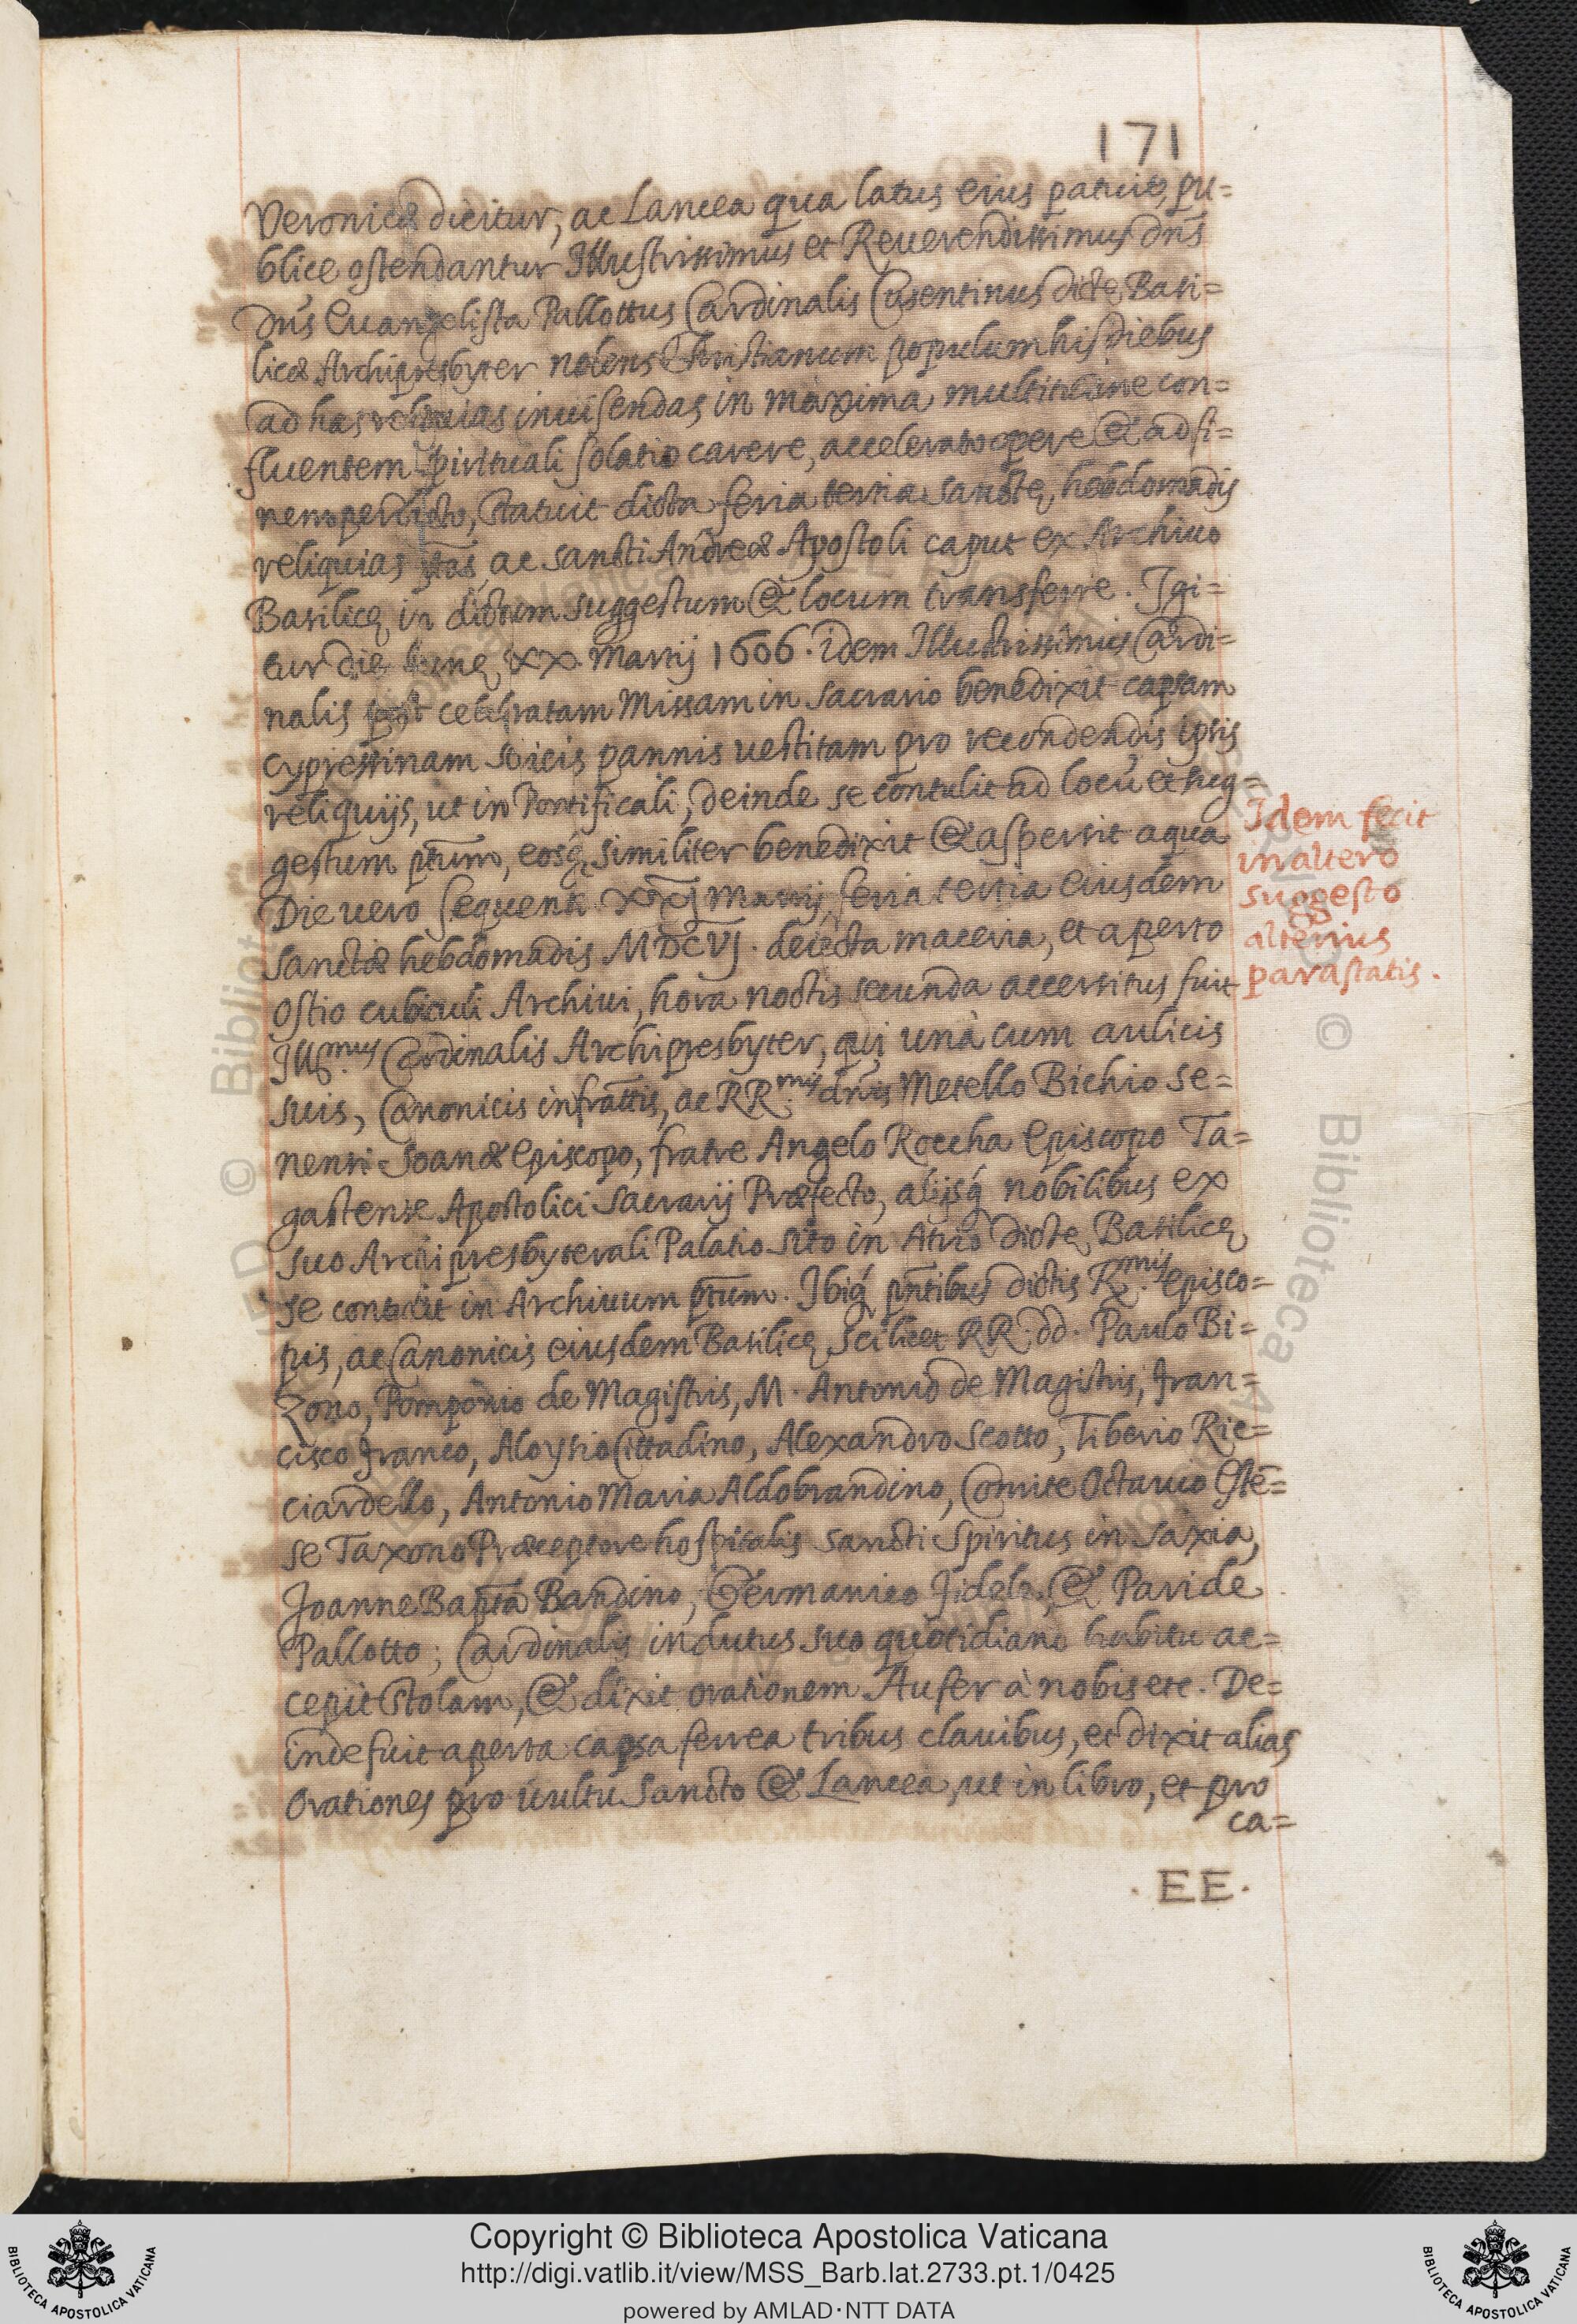 171
Veronicæ dicitur, ac Lancea qua latus eius patuit, pu=
blice ostendantur Illustrissimus et Reuerendissimus dn̄s
dn̄s Euangelista Pallottus Cardinalis Cusentinus dictę Basi=
licæ Archipresbyter nolens Christianum populum his diebus
ad has reliquias inuisendas in maxima multitudine con=
fluentem spirituali solatio carere, accelerato opere & ad fi=
nem perducto, statuit dicta feria tertia sanctę hebdomadis
reliquias ac sancti Andreæ Apostoli caput ex Archiuo
Basilicę in dictum suggestum & locum transferre. Igi=
tur die lunę xx. Martij 1606. idem Illustrissimus Cardi=
nalis post celebratam Missam in sacrario benedixit capsam
cypressinam sericis pannis uestitam pro recondendis ipsis
reliquijs, ut in Pontificali, deinde se contulit ad locū et sug=
gestum pt̄um, eosq́ similiter benedixit & aspersit aqua
Die uero sequenti xxj Martij feria tertia eiusdem
sanctæ hebdomadis MDCVJ. deiecta maceria, et aperto
ostio cubiculi Archiui, hora noctis secunda accersitus fuit
Ill.mus Cardinalis Archipresbyter, qui unà cum aulicis
suis, Canonicis infratt̄is, ac RR.mis dn̄is Metello Bichio se=
nensi Soanæ episcopo, fratre Angelo Roccha Episcopo Ta=
gastense Apostolici Sacrarij Præfecto, alijsq́ nobilibus ex
suo Archipresbyterali Palatio sito in Atrio dictę Basilicę
se contulit in Archiuum pt̄um. Ibiq́ pn̄tibus dictis R.mis episco=
pis, ac Canonicis eiusdem Basilicę scilicet RR. dd. Paulo Bi=
zono, Pomponio de Magistris, M. Antonio de Magistris, Fran=
cisco Franco, Aloysio Cittadino, Alexandro Scotto, Tiberio Ric=
ciardello, Antonio Maria Aldobrandino, Comite Octauio Estē=
se Taxono Præceptore hospitalis sancti Spiritus in Saxia,
Joanne Bapt̄a Bandino, Germanico Fidele, & Paride
Pallotto; Cardinalis indutus suo quotidiano habitu ac=
cepit stolam, & dixit orationem Aufer à nobis etc. De=
inde fuit aperta capsa ferrea tribus clauibus, et dixit alias
orationes pro uultu Sancto & Lancea, ut in libro, et pro
ca=
.EE.
Idem fecit
in altero
suggesto
alterius
parastatis.
Copyright © Biblioteca Apostolica Vaticana
http://digi.vatlib.it/view/MSS_Barb.lat.2733.pt.1/0425
powered by AMLAD·NTT DATA
BIBLIOTECA APOSTOLICA VATICANA
BIBLIOTECA APOSTOLICA VATICANA